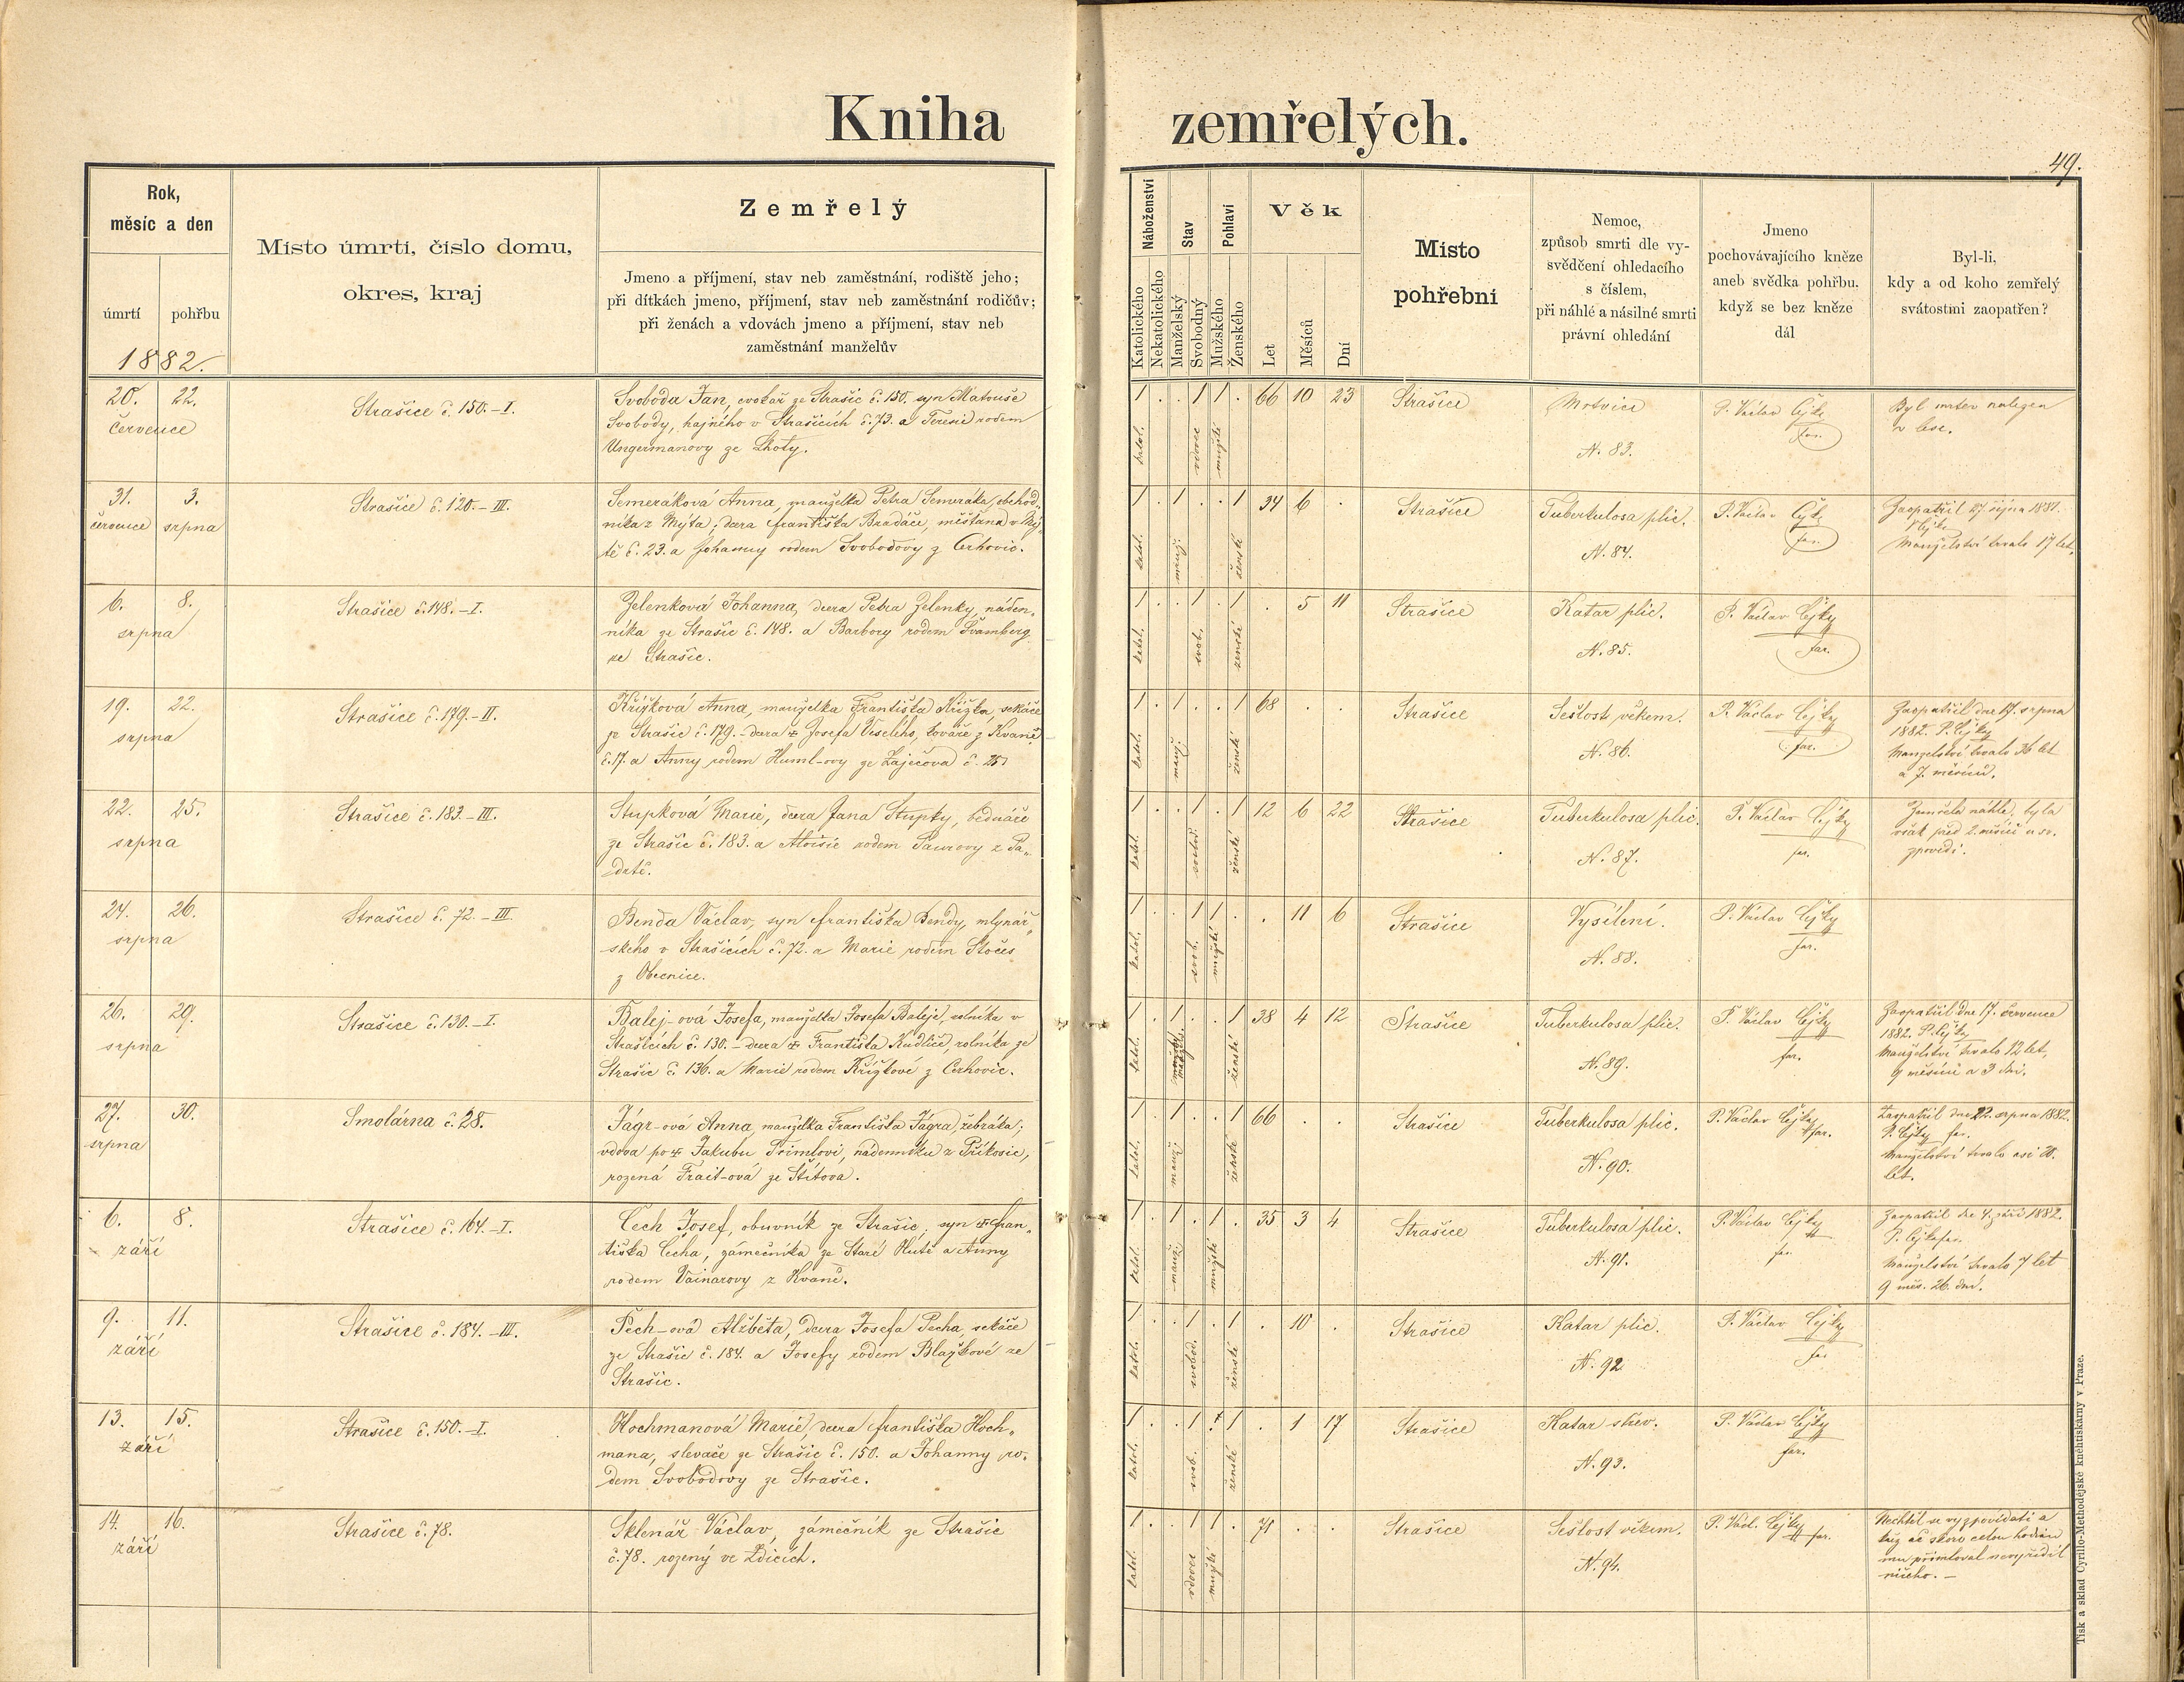 Kniha zemřelých.
49.
Rok,
měsíc a den
úmrtí
pohřbu
1882.
Místo úmrtí, číslo domu,
okres, kraj
Zemřelý
Jmeno a příjmení, stav neb zaměstnání, rodiště jeho;
při dítkách jmeno, příjmení, stav neb zaměstnání rodičův;
při ženách a vdovách jmeno a příjmení, stav neb
zaměstnání manželův
Náboženství
Katolického
Nekatolického
Stav
Manželský
Svobodný
Pohlaví
Mužského
Ženského
Věk
Let
Měsíců
Dní
Místo
pohřební
Nemoc,
způsob smrti dle vy-
svědčení ohledacího
s číslem,
při náhlé a násilné smrti
právní ohledání
Jmeno
pochovávajícího kněze
aneb svědka pohřbu,
když se bez kněze
dál
Byl-li,
kdy a od koho zemřelý
svátostmi zaopatřen?
20. 22.
července
Strašice č. 150.-I.
Svoboda Jan, cvokař ze Strašic č. 150. syn Matouše
Svobody, hajného v Strašicích č. 73. a Teresie rodem
Ungermanovy ze Lhoty.
1 . . 1 1 . 66 10 23
katol. vdovec mužské
Strašice
Mrtvice
N. 83.
P. Václav Čejka
far.
Byl mrtev nalezen
v lese.
31. 3.
července srpna
Strašice č. 120.-III.
Semeráková Anna, manželka Petra Semeráka, obchod-
níka z Mýta, dcera Františka Bradáče, měšťana v Mý-
tě č. 23. a Johanny rodem Svobodovy z Cerhovic.
1 . 1 . . 1 34 6 .
katol. manž. ženské
Strašice
Tuberkulosa plic.
N. 84.
P. Václav Čejka
far.
Zaopatřil 27. října 1881.
Manželství trvalo 17 let.
6. 8.
srpna
Strašice č. 148.-I.
Zelenková Johanna, dcera Petra Zelenky, náden-
níka ze Strašic č. 148. a Barbory rodem Švamberg
ze Strašic.
1 . . 1 . 1 . 5 11
katol. svob. ženské
Strašice
Katar plic.
N. 85.
P. Václav Čejka
far.
19. 22.
srpna
Strašice č. 179.-II.
Křížková Anna, manželka Františka Křížka, sekáče
ze Strašic č. 179. - dcera † Josefa Veselého, kováře z Kvaně
č. 17. a Anny rodem Huml-ovy ze Zaječova č. 25
1 . 1 . . 1 68 . .
katol. manž. ženské
Strašice
Sešlost věkem.
N. 86.
P. Václav Čejka
far.
Zaopatřil dne 17. srpna
1882. P. Čejka
Manželství trvalo 36 let
a 7. měsíců.
22. 25.
srpna
Strašice č. 183.-III.
Stupková Marie, dcera Jana Stupky, bednáře
ze Strašic č. 183. a Aloisie rodem Paurovy z Pa-
drtě.
1 . . 1 . 1 12 6 22
katol. svobod. ženské
Strašice
Tuberkulosa plic.
N. 87.
P. Václav Čejka
far.
Zemřela náhle, byla
však před 2. měsíci u sv.
zpovědi.
24. 26.
srpna
Strašice č. 72.-III.
Benda Václav, syn Františka Bendy, mlynář-
ského v Strašicích č. 72. a Marie rodem Stočes
z Obecnice.
1 . . 1 1 . . 11 6
katol. svob. mužské
Strašice
Vysílení.
N. 88.
P. Václav Čejka
far.
26. 29.
srpna
Strašice č. 130.-I.
Balej-ová Josefa, manželka Josefa Baleje, rolníka v
Strašicích č. 130. - dcera † Františka Kudliče, rolníka ze
Strašic č. 136. a Marie rodem Křížkové z Cerhovic.
1 . 1 . . 1 38 4 12
katol. manžel. ženské
Strašice
Tuberkulosa plic.
N. 89.
P. Václav Čejka
far.
Zaopatřil dne 17. července
1882. P. Čejka
Manželství trvalo 12 let,
9 měsíců a 3 dni.
27. 30.
srpna
Smolárna č. 28.
Jágr-ová Anna, manželka Františka Jágra, žebráka;
vdova po † Jakubu Trimlovi, nádenníku z Příkosic,
rozená Frait-ová ze Štítova.
1 . 1 . . 1 66 . .
katol. manž. ženské
Strašice
Tuberkulosa plic.
N. 90.
P. Václav Čejka
far.
Zaopatřil dne 22. srpna 1882.
P. Čejka far.
Manželství trvalo asi 20.
let.
6. 8.
září
Strašice č. 164.-I.
Čech Josef, obuvník ze Strašic, syn † Fran-
tiška Čecha, zámečníka ze Staré Hutě a Anny
rodem Vainarovy z Kvaně.
1 . 1 . 1 . 35 3 4
katol. manž. mužské
Strašice
Tuberkulosa plic.
N. 91.
P. Václav Čejka
far.
Zaopatřil dne 4. září 1882.
P. Čejka far.
Manželství trvalo 7 let
9 měs. 26. dní.
9. 11.
září
Strašice č. 184.-III.
Pech-ová Alžběta, dcera Josefa Pecha, sekáče
ze Strašic č. 184. a Josefy rodem Blažkové ze
Strašic.
1 . . 1 . 1 . 10 .
katol. svobod. ženské
Strašice
Katar plic.
N. 92
P. Václav Čejka
far
13. 15.
září
Strašice č. 150.-I.
Hochmanová Marie, dcera Františka Hoch-
mana, slevače ze Strašic č. 150. a Johanny ro-
dem Svobodovy ze Strašic.
1 . . 1 . 1 . 1 17
katol. svob. ženské
Strašice
Katar střev.
N. 93.
P. Václav Čejka
far.
14. 16.
září
Strašice č. 78.
Sklenář Václav, zámečník ze Strašic
č. 78. rozený ve Zdicích.
1 . . 1 1 . 71 . .
katol. vdovec mužské
Strašice
Sešlost věkem.
N. 94.
P. Václ. Čejka
far.
Nechtěl se vyzpovídati a
kněz ač skoro celou hodinu
mu přimlouval nevyřídil
ničeho. -
Tisk a sklad Cyrillo-Methodějské kněhtiskárny v Praze.